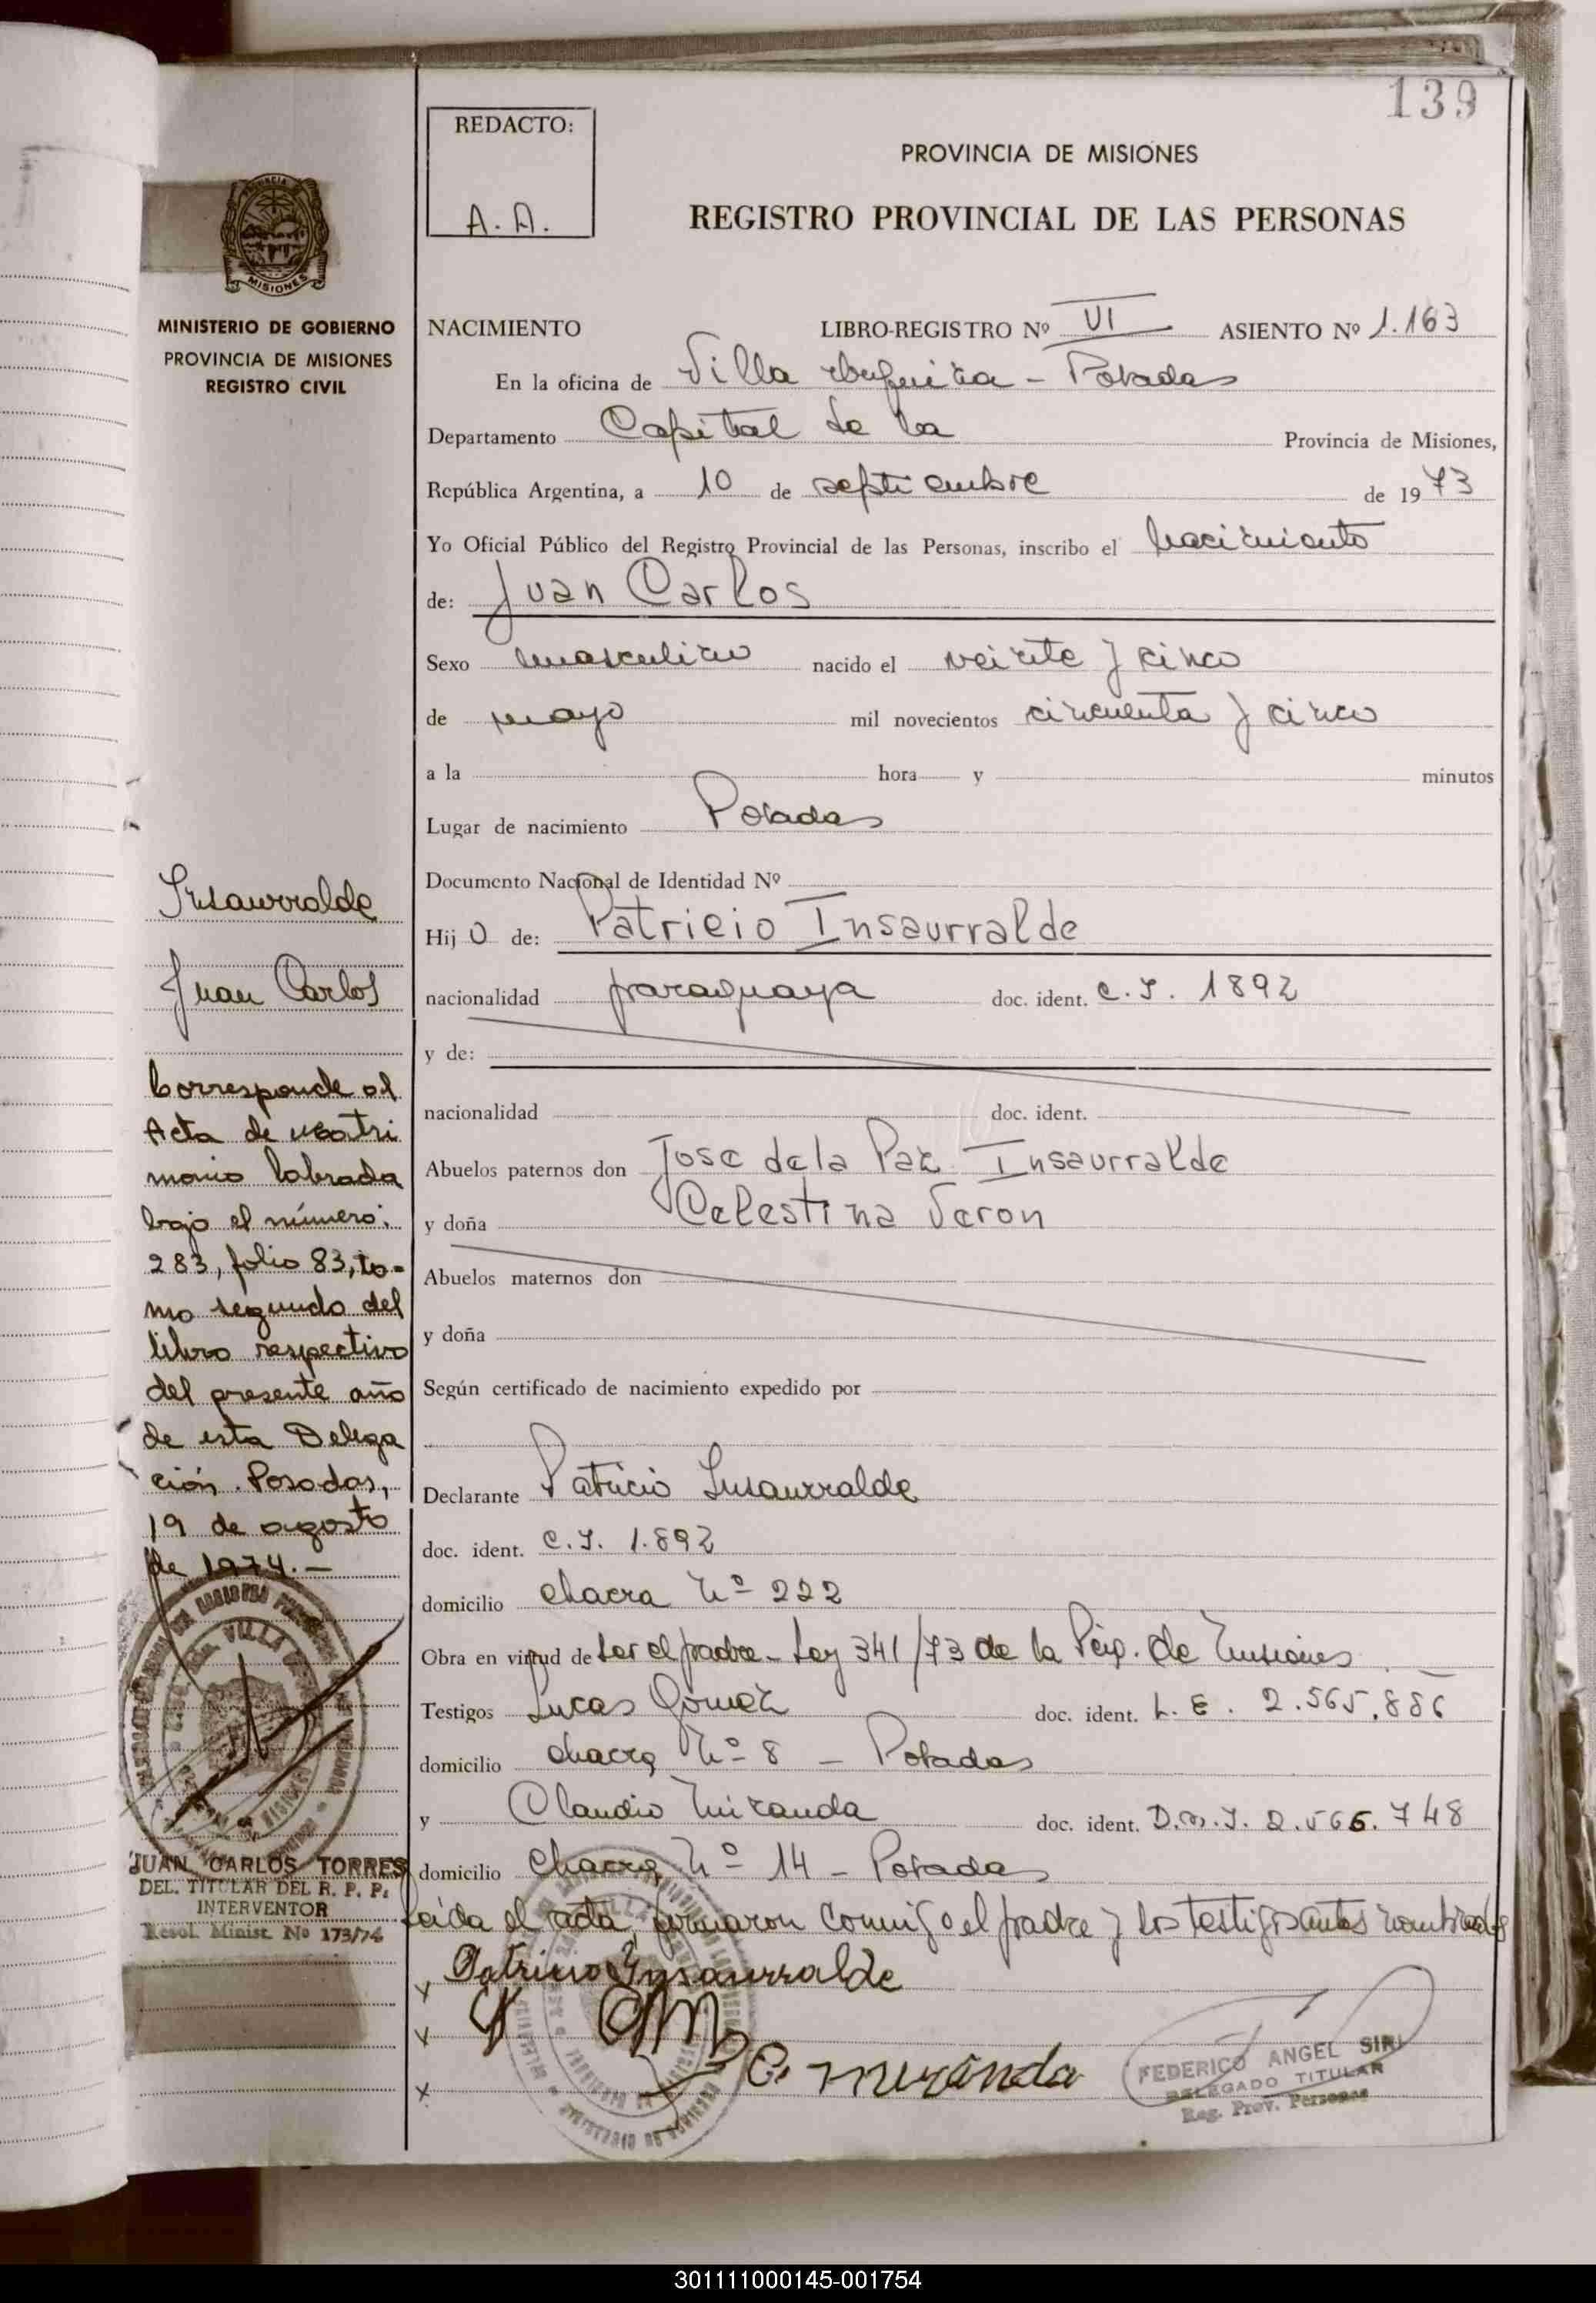 139
REDACTO:
A. A.
PROVINCIA DE MISIONES
REGISTRO PROVINCIAL DE LAS PERSONAS
MINISTERIO DE GOBIERNO
PROVINCIA DE MISIONES
REGISTRO CIVIL
NACIMIENTO LIBRO-REGISTRO Nº VI ASIENTO Nº 1.163
En la oficina de Villa Urquiza - Posadas
Departamento Capital de la Provincia de Misiones,
República Argentina, a 10 de septiembre de 1973
Yo Oficial Público del Registro Provincial de las Personas, inscribo el nacimiento
de: Juan Carlos
Sexo masculino nacido el veinte y cinco
de mayo mil novecientos cincuenta y cinco
a la hora y minutos
Lugar de nacimiento Posadas
Documento Nacional de Identidad Nº
Hij o de: Patricio Insaurralde
nacionalidad paraguaya doc. ident. C.I. 1892
y de:
nacionalidad doc. ident.
Abuelos paternos don Jose de la Paz Insaurralde
y doña Celestina Veron
Abuelos maternos don
y doña
Según certificado de nacimiento expedido por
Declarante Patricio Insaurralde
doc. ident. C.I. 1.892
domicilio chacra Nº 222
Obra en virtud de ser el padre - Ley 341/73 de la Pcia. de Misiones
Testigos Lucas Gomez doc. ident. L. E. 2.565.886
domicilio chacra Nº 8 - Posadas
y Claudio Miranda doc. ident. D.N.I. 2.566.748
domicilio chacra Nº 14 - Posadas
Leida el acta, firmaron conmigo el padre y los testigos antes nombrados
x Patricio Insaurralde
x
x C. Miranda
FEDERICO ANGEL SIRI
DELEGADO TITULAR
Reg. Prov. Personas
Insaurralde
Juan Carlos
Corresponde al
Acta de matri
monio labrada
bajo el número:
283, folio 83, to=
mo segundo del
libro respectivo
del presente año
de esta Delega
ción. Posadas,
19 de agosto
de 1974.-
JUAN CARLOS TORRES
DEL. TITULAR DEL R. P. P.
INTERVENTOR
Resol. Minist. No 173/74
301111000145-001754